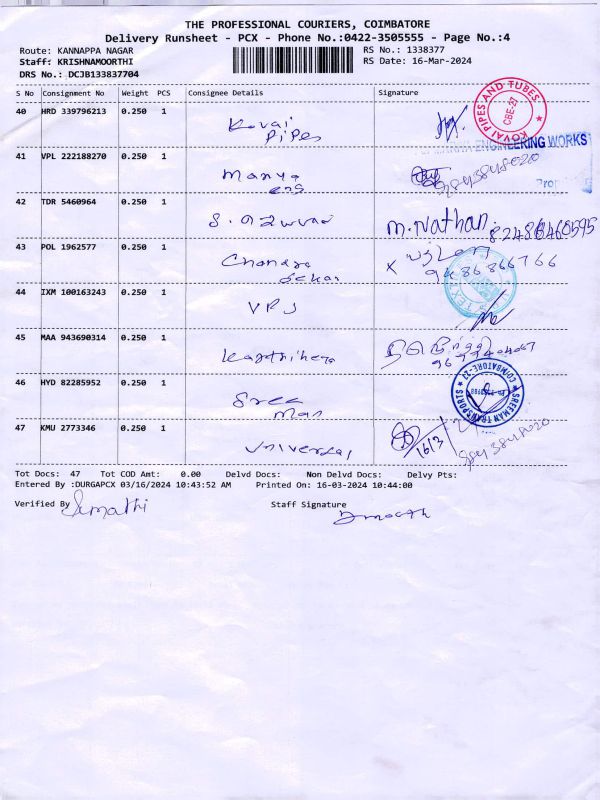 THE PROFESSIONAL COURIERS, COIMBATORE
Delivery Runsheet - PCX - Phone No.:0422-3505555 - Page No.:4
Route: KANNAPPA NAGAR RS No.: 1338377
Staff: KRISHNAMOORTHI RS Date: 16-Mar-2024
DRS No.: DCJB133837704
S No Consignment No Weight PCS Consignee Details Signature
40 HRD 339796213 0.250 1 Kovai Pipes
KOVAI PIPES AND TUBES CBE-27
41 VPL 222188270 0.250 1 Manya
ENGINEERING WORKS
9843848020
42 TDR 5460964 0.250 1 M.Nathan
43 POL 1962577 0.250 1 Chandra Sekar
X 9486866766
44 IXM 100163243 0.250 1 VPJ
45 MAA 943690314 0.250 1
46 HYD 82285952 0.250 1 Sree Man
SREEMAN TRANSPORTS COIMBATORE-21
47 KMU 2773346 0.250 1 Universal
16/3
9843848020
Tot Docs: 47 Tot COD Amt: 0.00 Delvd Docs: Non Delvd Docs: Delvy Pts:
Entered By :DURGAPCX 03/16/2024 10:43:52 AM Printed On: 16-03-2024 10:44:00
Verified By Staff Signature